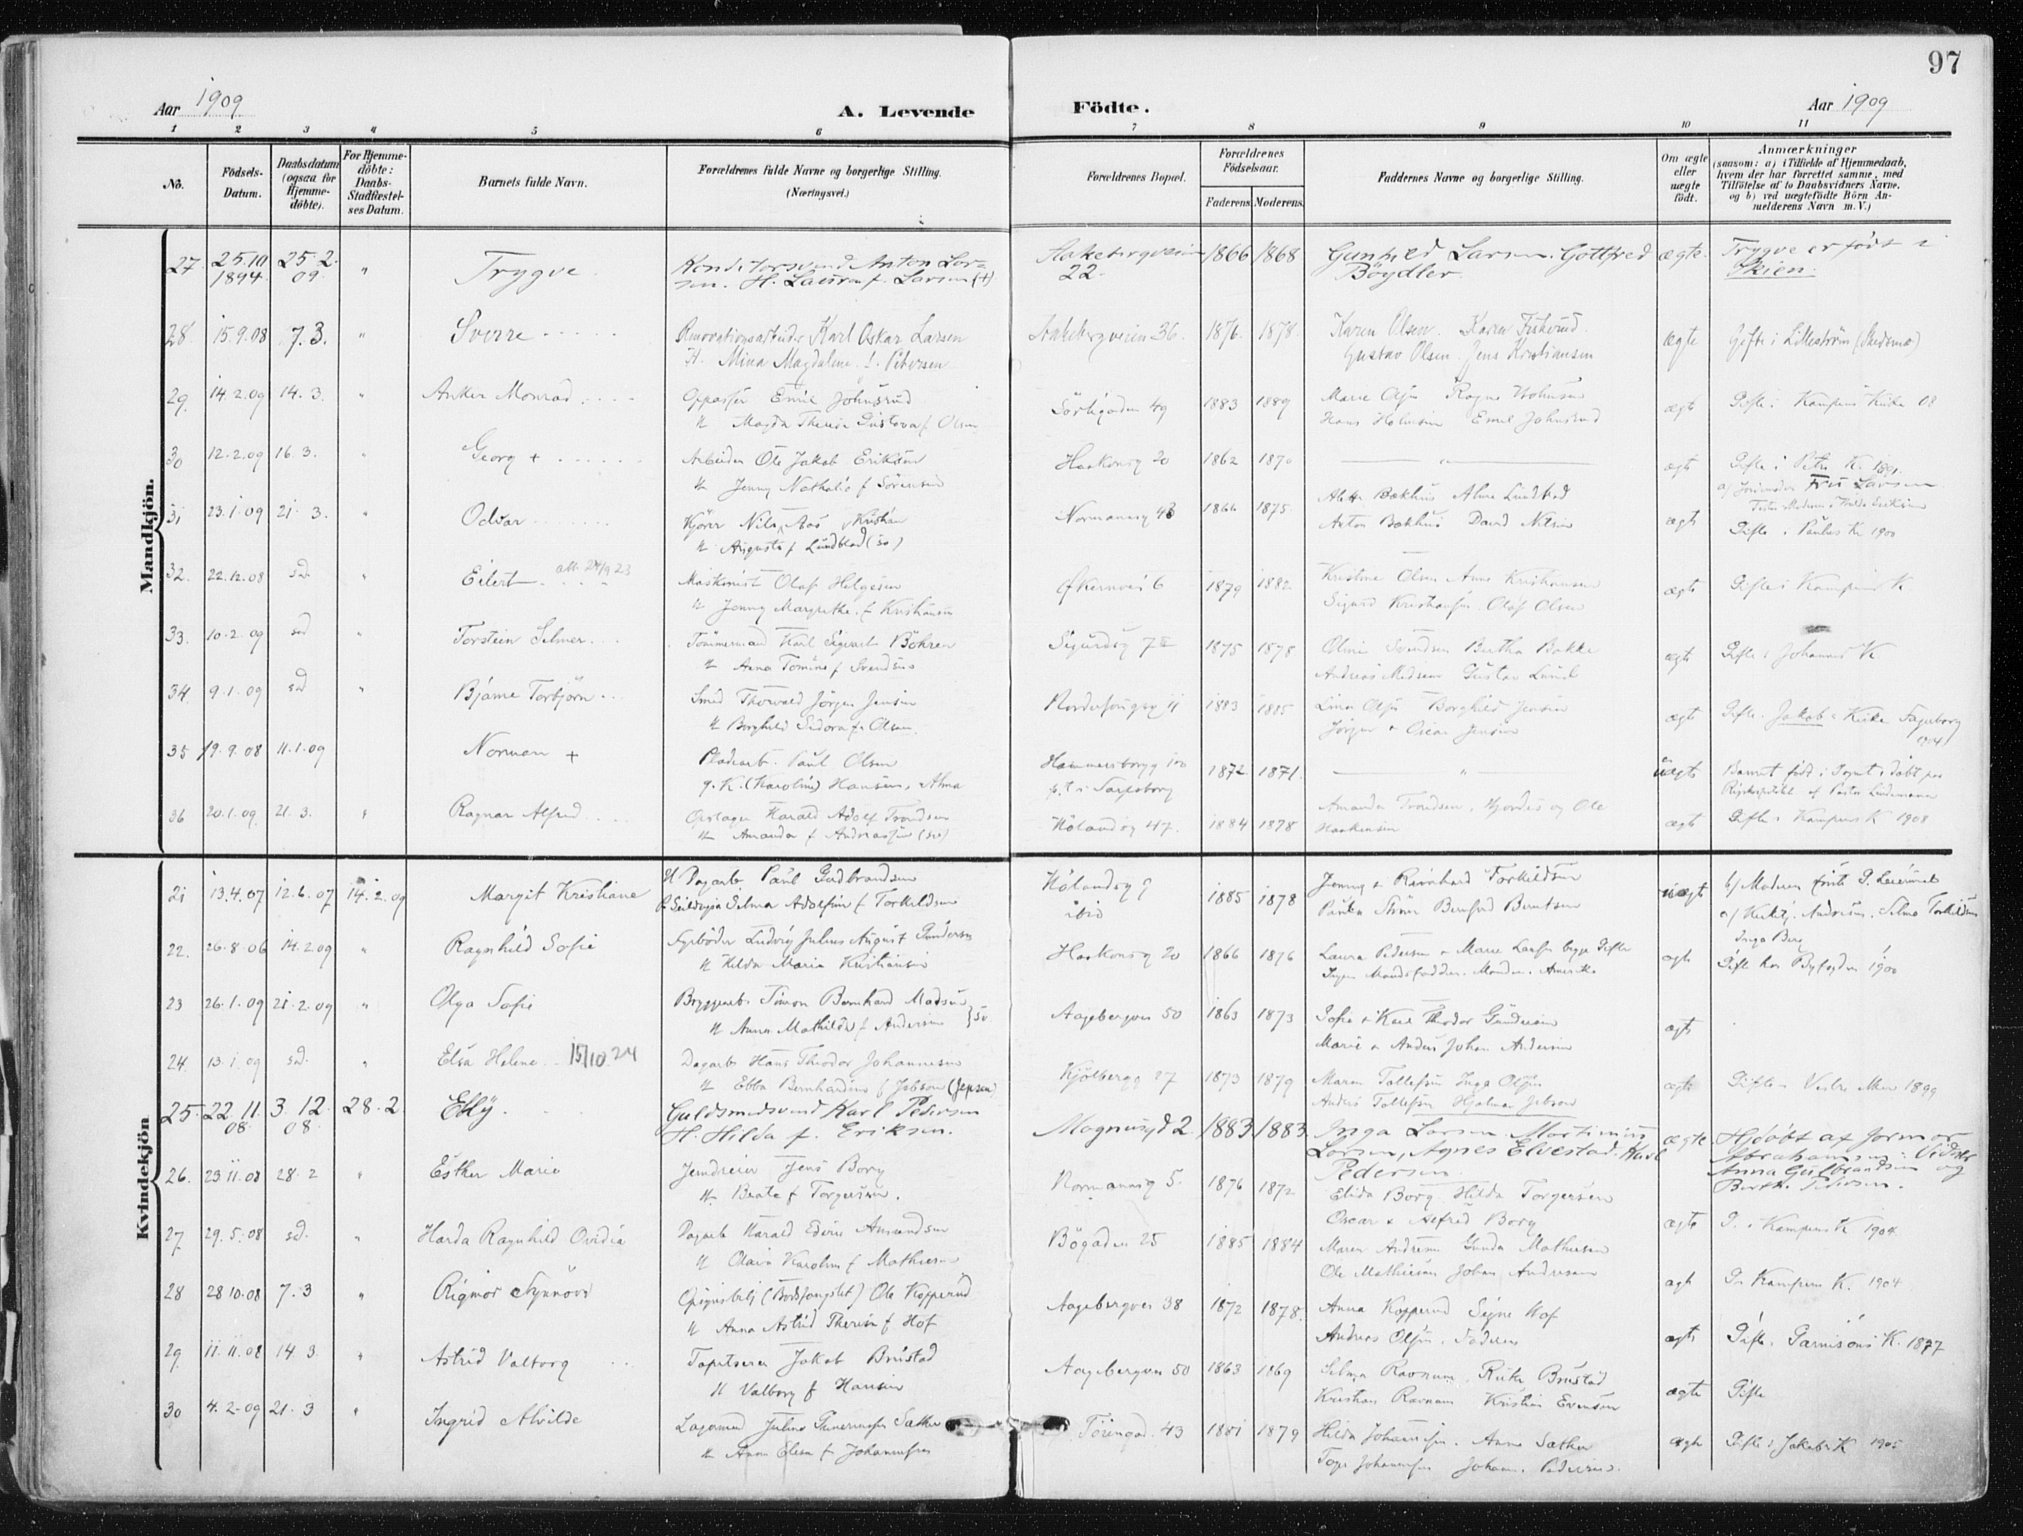 97
Aar 1909
A. Levende
Födte.
Aar 1909
1 2 3 4 5 6 7 8 9 10 11
No.
Födsels-
Datum.
Daabsdatum
(ogsaa for
Hjemme-
döbte).
For Hjemme-
döbte:
Daabs-
Stadfæstel-
ses Datum.
Barnets fulde Navn.
Forældrenes fulde Navne og borgerlige Stilling.
(Næringsvei.)
Forældrenes Bopæl.
Forældrenes
Födselsaar.
Faderens Moderens
Faddernes Navne og borgerlige Stilling.
Om ægte
eller
uægte
födt.
Anmærkninger
(saasom: a) i Tilfælde af Hjemmedaab,
hvem der har forrettet samme, med
Tilföielse af to Daabsvidners Navne,
og b) ved uægtefödte Börn An-
melderens Navn m. V.)
Mandkjön.
27. 25.10 1894 25.2 09. " Trygve. Konditorsvend Anton Lar-
sen. H. Laura f. Larsen (+) 22. 1866 1868 Gunhild Larsen. Gottfred
Böydler ægte. Trygve er født i
Skien.
28 15.9.08 7.3. " Sverre Karl Oskar Larsen
H. Mina Magdalene f. Petersen Aakebergveien 36. 1876. 1878. Karen Olsen. Karen
Gustav Olsen. Jens Kristiansen ægte Gifte i Lilleström (Skedsmo)
29. 14.2.09 14.3. " Anker Monrad Emil Johnsrud
Magda Therese Gustava f. Olsen Sörligaden 49 1883 1889 Marie
Hans Holmsen Emil Johnsrud ægte Gifte i Kampens Kirke 08
30 12.2.09 16.3. " Georg + Arbeider Ole Jakob Eriksen
H. Jenny Nathalie f Sörensen Haakonsg 20 1862 1870 " ægte Gifte i Petri K. 1891.
Fru Larsen
31 23.1.09 21.3. " Odvar Kjörer Nils Aas
H. Augusta f Lundblad (sv) Normannsg 48 1866 1875 Bakhus Alma Lundblad
Anton Bakhus David Nilsen ægte Gifte i Paulus K. 1900
32. 22.12.08 sd. " Eilert Maskinist Olaf Helgesen
H. Jenny Margrethe f Kristiansen Økernvei 6 1879 1882 Kristine Olsen Anne Kristiansen
Sigurd Kristiansen Olaf Olsen ægte Gifte i Kampens K
33. 10.2.09 sd " Torstein Selmer Tömmermand Karl Sigvart Böhren
H. Anna Tomine f Svendsen Sigurdsg 7 1875 1878 Oline Svendsen Bertha Bakke
Andreas Madsen Gustav Lund ægte Gifte i Johannes K
34 9.1.09 sd " Bjarne Torbjörn Smed Thorvald Jörgen Jensen
H. Borghild Sedora f. Olsen 1883 1885 Lina Olsen Borghild Jensen
Jörgen & Oscar Jensen ægte Gifte Jakobs Kirke Fagerborg
1904
35 19.9.08 11.1.09 Norman + Paul Olsen
g. K. (Karoline) Hansen, Alma Hammersborgg 100
p.t. i Sarpsborg 1872 1871. " uægte Barnet født i Tomt, døbt paa
Rigshospitalet af Pastor Lindemann
36 20.1.09. 21.3. " Ragnar Alfred Harald Adolf Trondsen
H. Amanda f Andreassen (sv) Hölandsg 47. 1884 1878 Amanda Trondsen, Hjördis og Ole
Haakensen ægte Gifte i Kampens K 1908
Kvindekjön
21 13.4.07 12.6.07 14.2.09 Margit Kristiane Dagarb. Paul Gudbrandsen
Selma Adolfine f Torkildsen Hölandsg 9
ibid 1885 1878 Jenny & Reinhard Torkildsen
Bernhard Berntsen uægte b/ Moderen
a/ Andresen. Selma Torkildsen
Inga Berg
22. 26.8.06 14.2.09 " Ragnhild Sofie Fyrböder Ludvig Julius August Gundersen
H Hilda Maria Kristiansen Haakonsg 20 1866 1876 Laura Pedersen & Marie Larsen begge Gifte
Ingen Mandsfadder. Manden i Amerika ægte Gifte hos Byfogden 1900
23 26.1.09 21.2.09 " Olga Sofie Bryggearb. Simon Bernhard Madsen
H Anna Mathilde f Andersen } sv Aagebergvei 50 1863 1873 Sofie & Karl Theodor Gundersen
Marie & Anders Johan Andersen ægte
24. 13.1.09 sd. " Elsa Helene 15/10.24 Dagarb Hans Theodor Johannesen
H Ebba Bernhardine f Jebsen (Jepsen) Kjölbergg 27 1873 1879 Maren Tollefsen Inga Olsen
Anders Tollefsen Hjalmar Jebsen ægte Gifte i Vestre Aker 1899
25. 22.11 08 3.12 08. 28.2. Elly. Guldsmedsvend Karl Pedersen
H. Hilda f. Eriksen. Magnusgd 2. 1883 1883. Inga Larsen Martinius
Larsen, Agnes Elvestad. Karl
Pedersen ægte Hjdøbt af Jormor
Abrahamsen. Vidner
Anna Gulbrandsen og
Berthe Pedersen.
26. 23.11.08 28.2 " Esther Marie Jerndreier Jens Borg
H. Beate f Torgersen. Normannsg 5. 1876 1872 Elida Borg Hilda Torgersen
Oscar & Alfred Borg ægte G. i Kampens K 1904
27 29.5.08 sd. " Harda Ragnhild Ovidia Dagarb Harald Edvin Amundsen
H Olava Karoline f Mathiesen Bögaden 25 1885 1884 Maren Andresen Gunda Mathiesen
Ole Mathiesen Johan Andresen
28 28.10.08 7.3 " Rigmor Synnöve (Bodsfængslet) Ole Kopperud
H Anna Astrid Therese f Hof Aagebergvei 38 1872 1878. Anna Kopperud Signe Hof
Andreas Olsen. Faderen ægte G. i Kampens K. 1904
29 11.11.08 14.3 " Astrid Valborg Tapetserer Jakob Brustad
H Valborg f Hansen Aagebergvei 50 1863 1869 Selma Ravnum. Rikke Brustad
Kristian Ravnum Kristian Evensen ægte Gifte. Garnisons K. 1897
30 4.2.09 21.3 " Ingrid Alvilde Julius Sæther
H Anna Elise f Johannesen 43 1881 1879 Hilda Johannesen. Anna Sæther
Johannesen Johan Pedersen. ægte Gifte i Jakobs K 1905